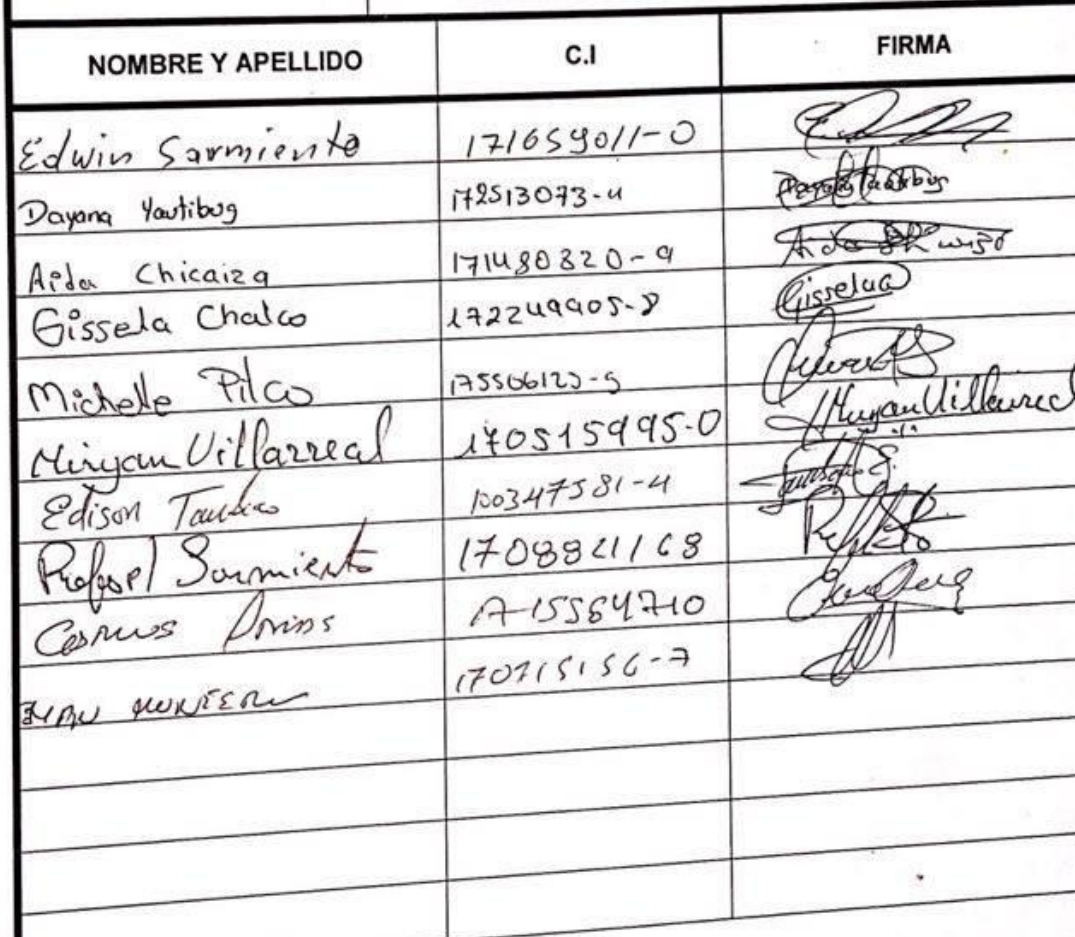 NOMBRE Y APELLIDO C.I FIRMA
Edwin Sarmiento 171659011-0
Dayana Yautibug 172513073-4 Dayana Yautibug
Aida Chicaiza 171480320-9 Aida
Gissela Chalco 172249905-8 Gissela
Michelle Pilco 175506123-9
Miryan Villarreal 170515995-0 Miryan Villarreal
Edison 100347581-4
Sarmiento 1708821168
1715564710
170715156-7